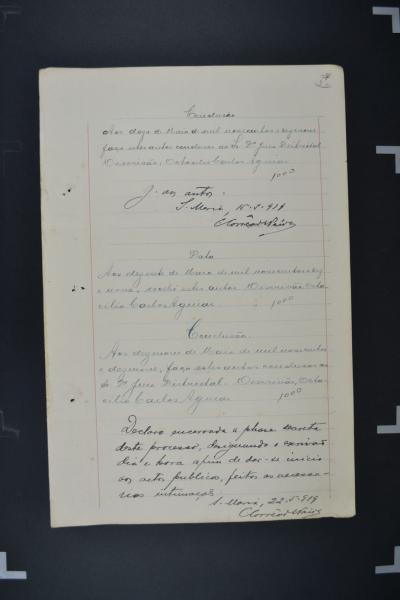 Conclusão
Aos doze de Maio de mil novecentos e dezenove
faço estes autos conclusos ao Sr. Dr. Juiz Districtal.
O escrivão, Octacilio Carlos Aguiar
1000
J. aos autos.
S. Maria, 15-5-919
Data
Aos dezenove de Maio de mil novecentos e dez
e nove, recebi estes autos. O escrivão, Octa-
cilio Carlos Aguiar 1000
Conclusão.
Aos dezenove de Maio de mil novecentos
e dezenove, faço estes autos conclusos ao
Sr. Dr. Juiz Districtal. O escrivão, Octa-
cilio Carlos Aguiar 1000
Declaro encerrada a phase secreta
deste processo, designando o escrivão
dia e hora afim de dar-se inicio
aos actos publicos, feitas as necessa-
rias intimações.
S. Maria, 22-5-919